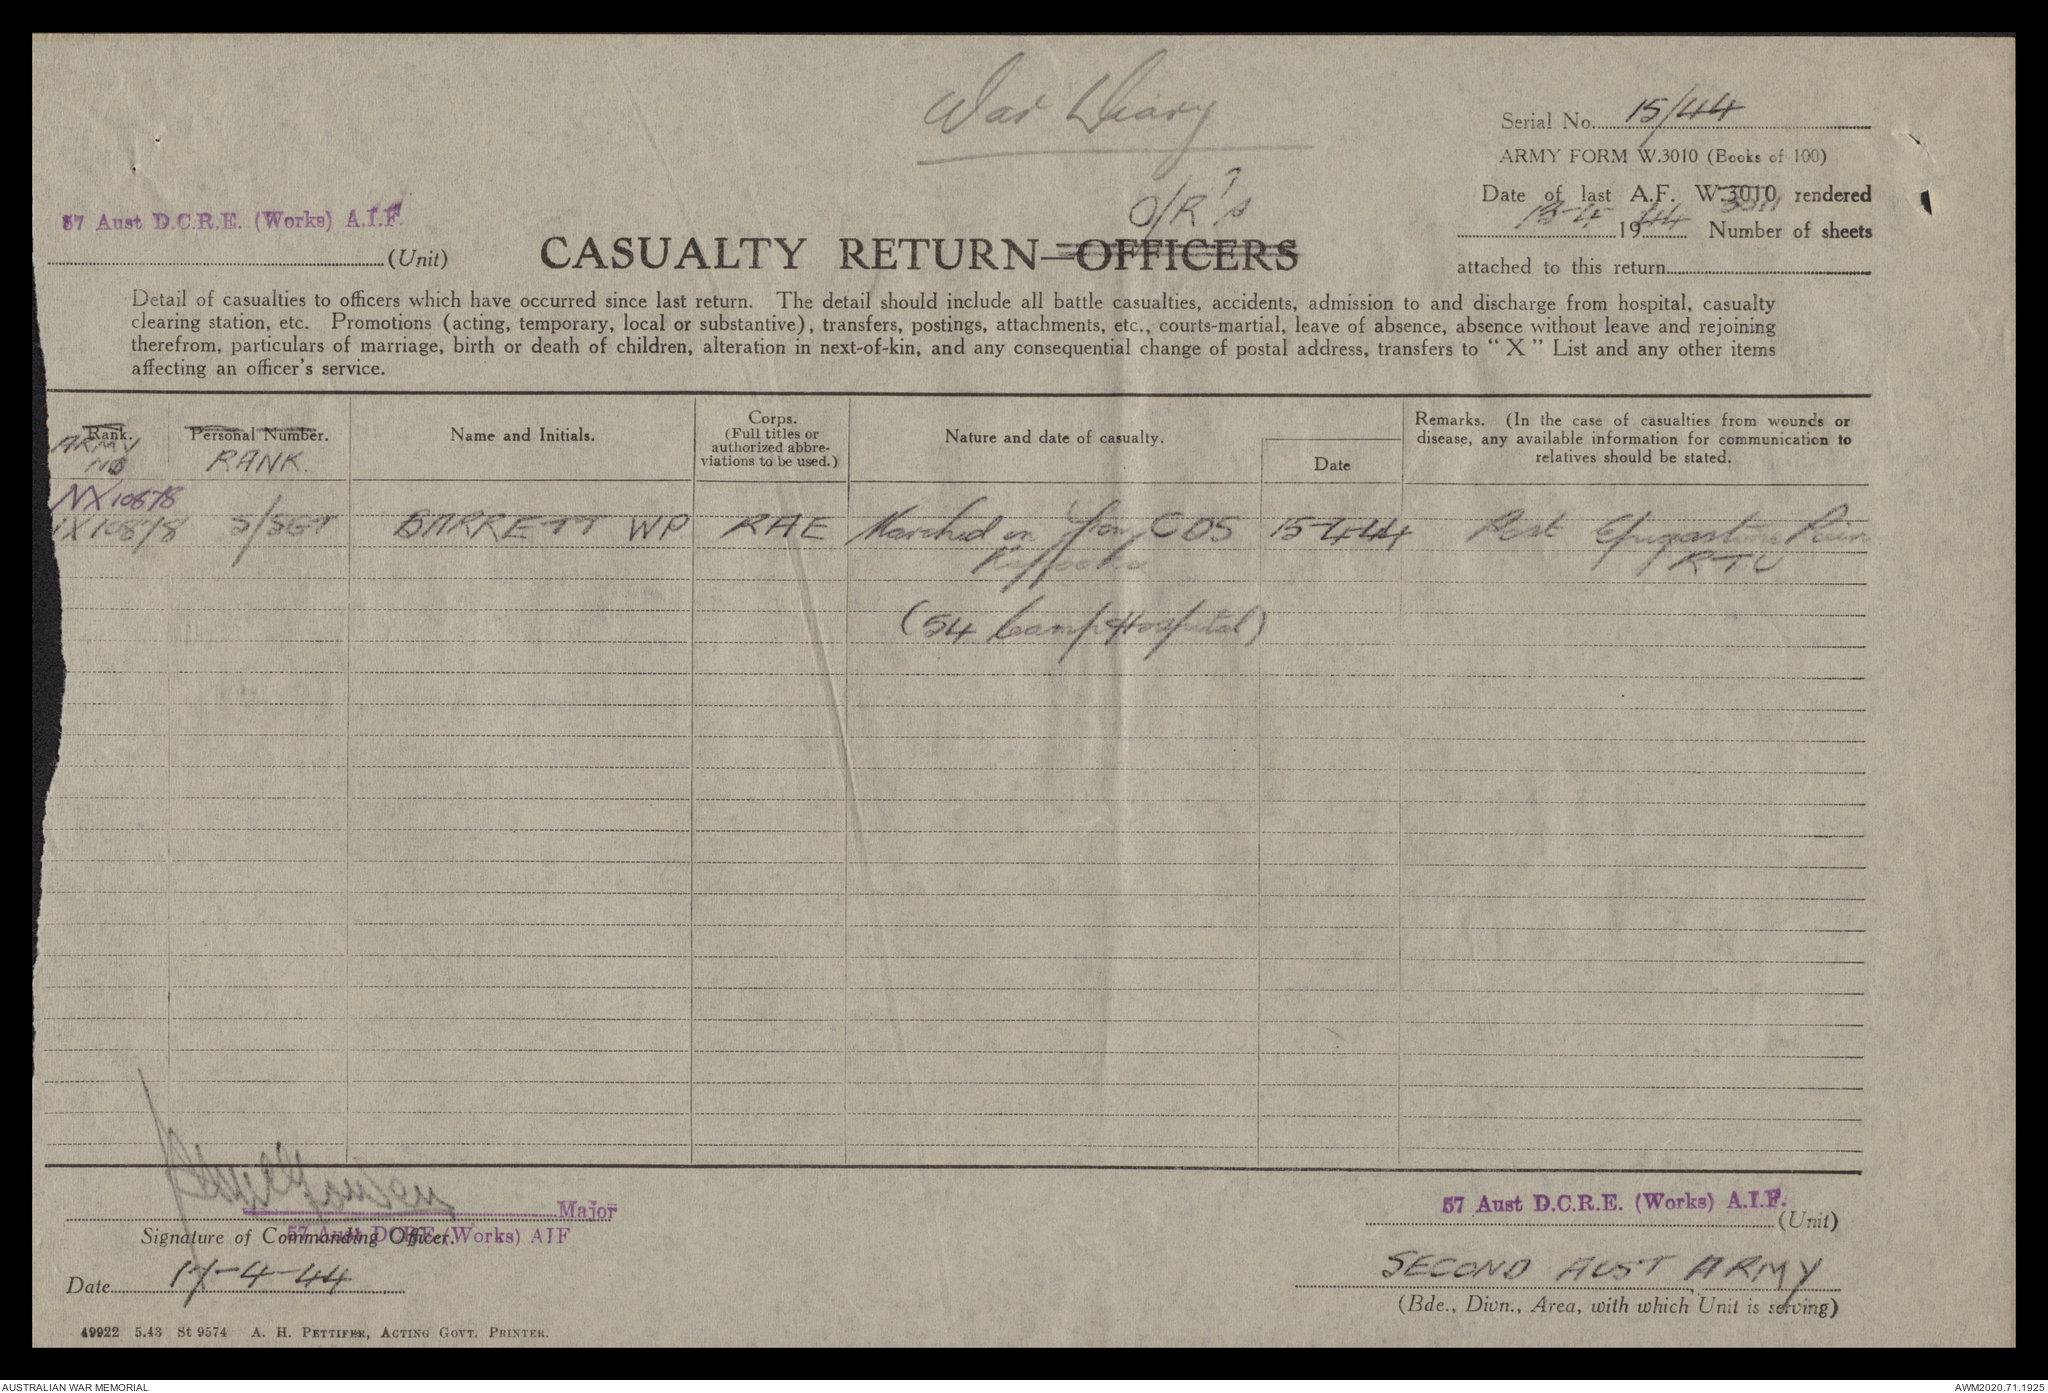 War Diary
Serial No. 15/44
ARMY FORM W.3010 (Books of 100)
Date of last A.F. W.3010 rendered
3011
13-4 1944 Number of sheets
attached to this return
57 Aust D.C.R.E. (Works) A.I.F.
(Unit)
O/R's
CASUALTY RETURN—OFFICERS
Detail of casualties to officers which have occurred since last return. The detail should include all battle casualties, accidents, admission to and discharge from hospital, casualty
clearing station, etc. Promotions (acting, temporary, local or substantive), transfers, postings, attachments, etc., courts-martial, leave of absence, absence without leave and rejoining
therefrom, particulars of marriage, birth or death of children, alteration in next-of-kin, and any consequential change of postal address, transfers to “X” List and any other items
affecting an officer's service.
Rank.
ARMY
NO
Personal Number.
RANK.
Name and Initials.
Corps.
(Full titles or
authorized abbre-
viations to be used.)
Nature and date of casualty.
Date
Remarks. (In the case of casualties from wounds or
disease, any available information for communication to
relatives should be stated.
NX10878
NX10878 S/SGT BARRETT WP RAE Marched in from CDS 15-4-44 Post Epigastric Pain
Kapooka RTU
(54 Camp Hospital)
Major
57 Aust DCRE (Works) AIF
Signature of Commanding Officer.
Date 17-4-44
57 Aust D.C.R.E. (Works) A.I.F.
(Unit)
SECOND AUST ARMY
(Bde., Divn., Area, with which Unit is serving)
49922 5.43 St 9574 A. H. PETTIFER, ACTING GOVT. PRINTER.
AUSTRALIAN WAR MEMORIAL
AWM2020.71.1925